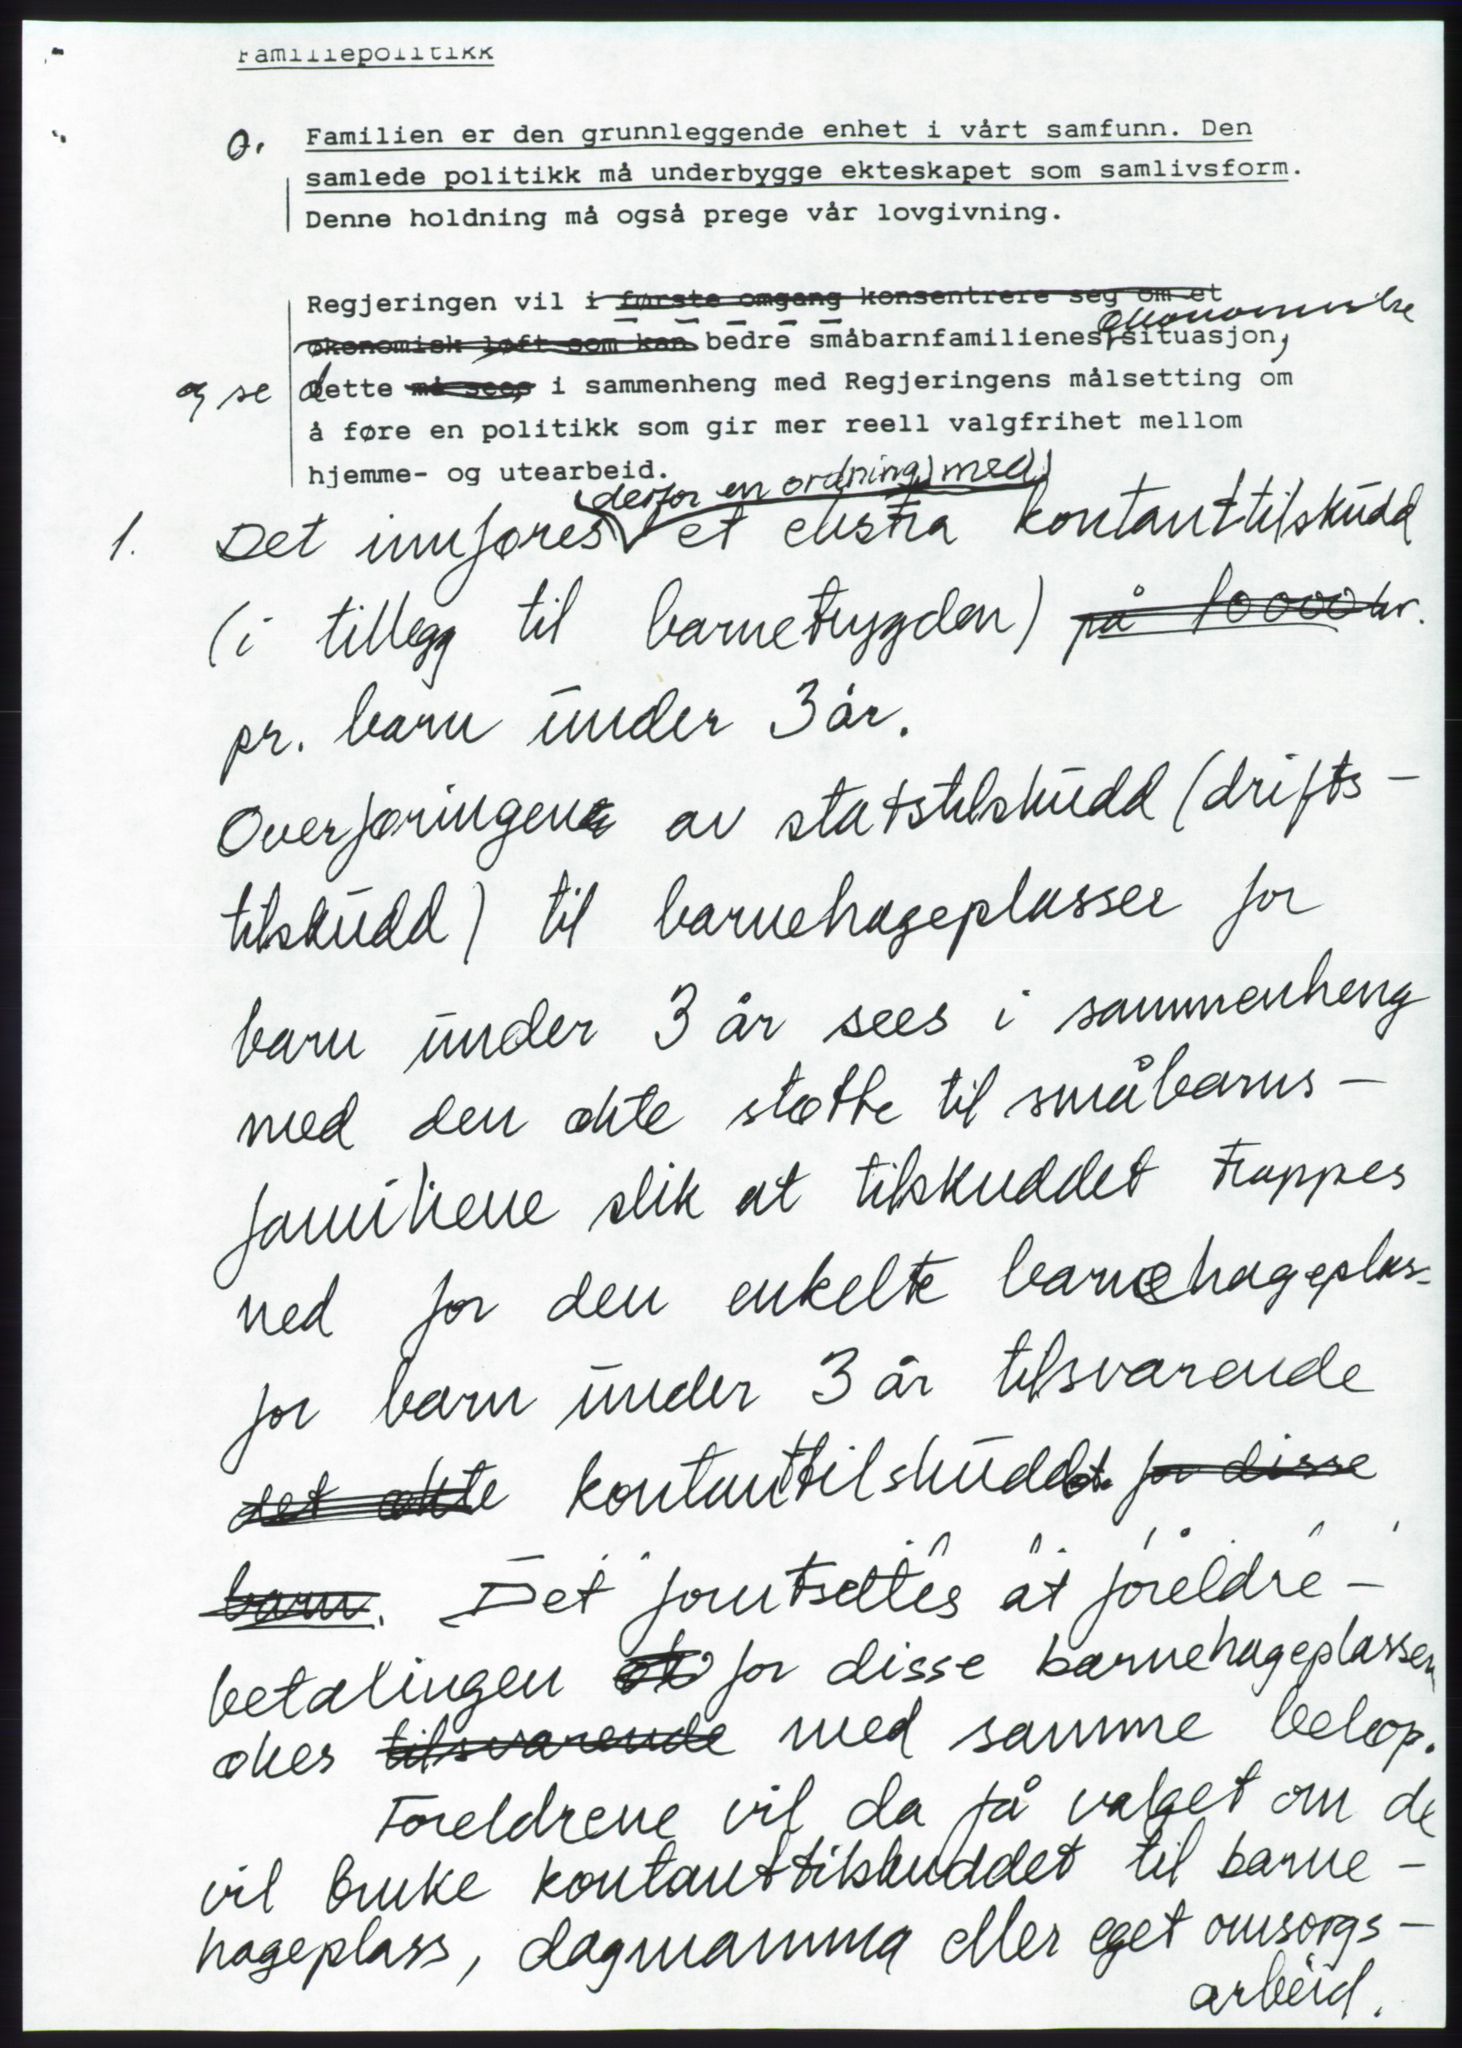 Familiepolitikk
0. Familien er den grunnleggende enhet i vårt samfunn. Den
samlede politikk må underbygge ekteskapet som samlivsform.
Denne holdning må også prege vår lovgivning.
Regjeringen vil i første omgang konsentrere seg om et
økonomiske
økonomisk løft som kan bedre småbarnfamilienes situasjon,
og se dette må sees, i sammenheng med Regjeringens målsetting om
å føre en politikk som gir mer reell valgfrihet mellom
hjemme- og utearbeid.
derfor en ordning med
1. Det innføres et ekstra kontanttilskudd
(i tillegg til barnetrygden) på 10000 kr.
pr. barn under 3 år.
Overføringene av statstilskudd (drifts-
tilskudd) til barnehageplasser for
barn under 3 år sees i sammenheng
med den økte støtte til småbarns-
familiene slik at tilskuddet trappes
ned for den enkelte barnehageplas-
for barn under 3 år tilsvarende
det økte kontanttilskuddet for disse
barn. Det forutsettes at foreldre-
betalingen for disse barnehageplassen
økes tilsvarende med samme beløp.
Foreldrene vil da få valget om de
vil bruke kontanttilskuddet til barne-
hageplass, dagmamma eller eget omsorgs-
arbeid.